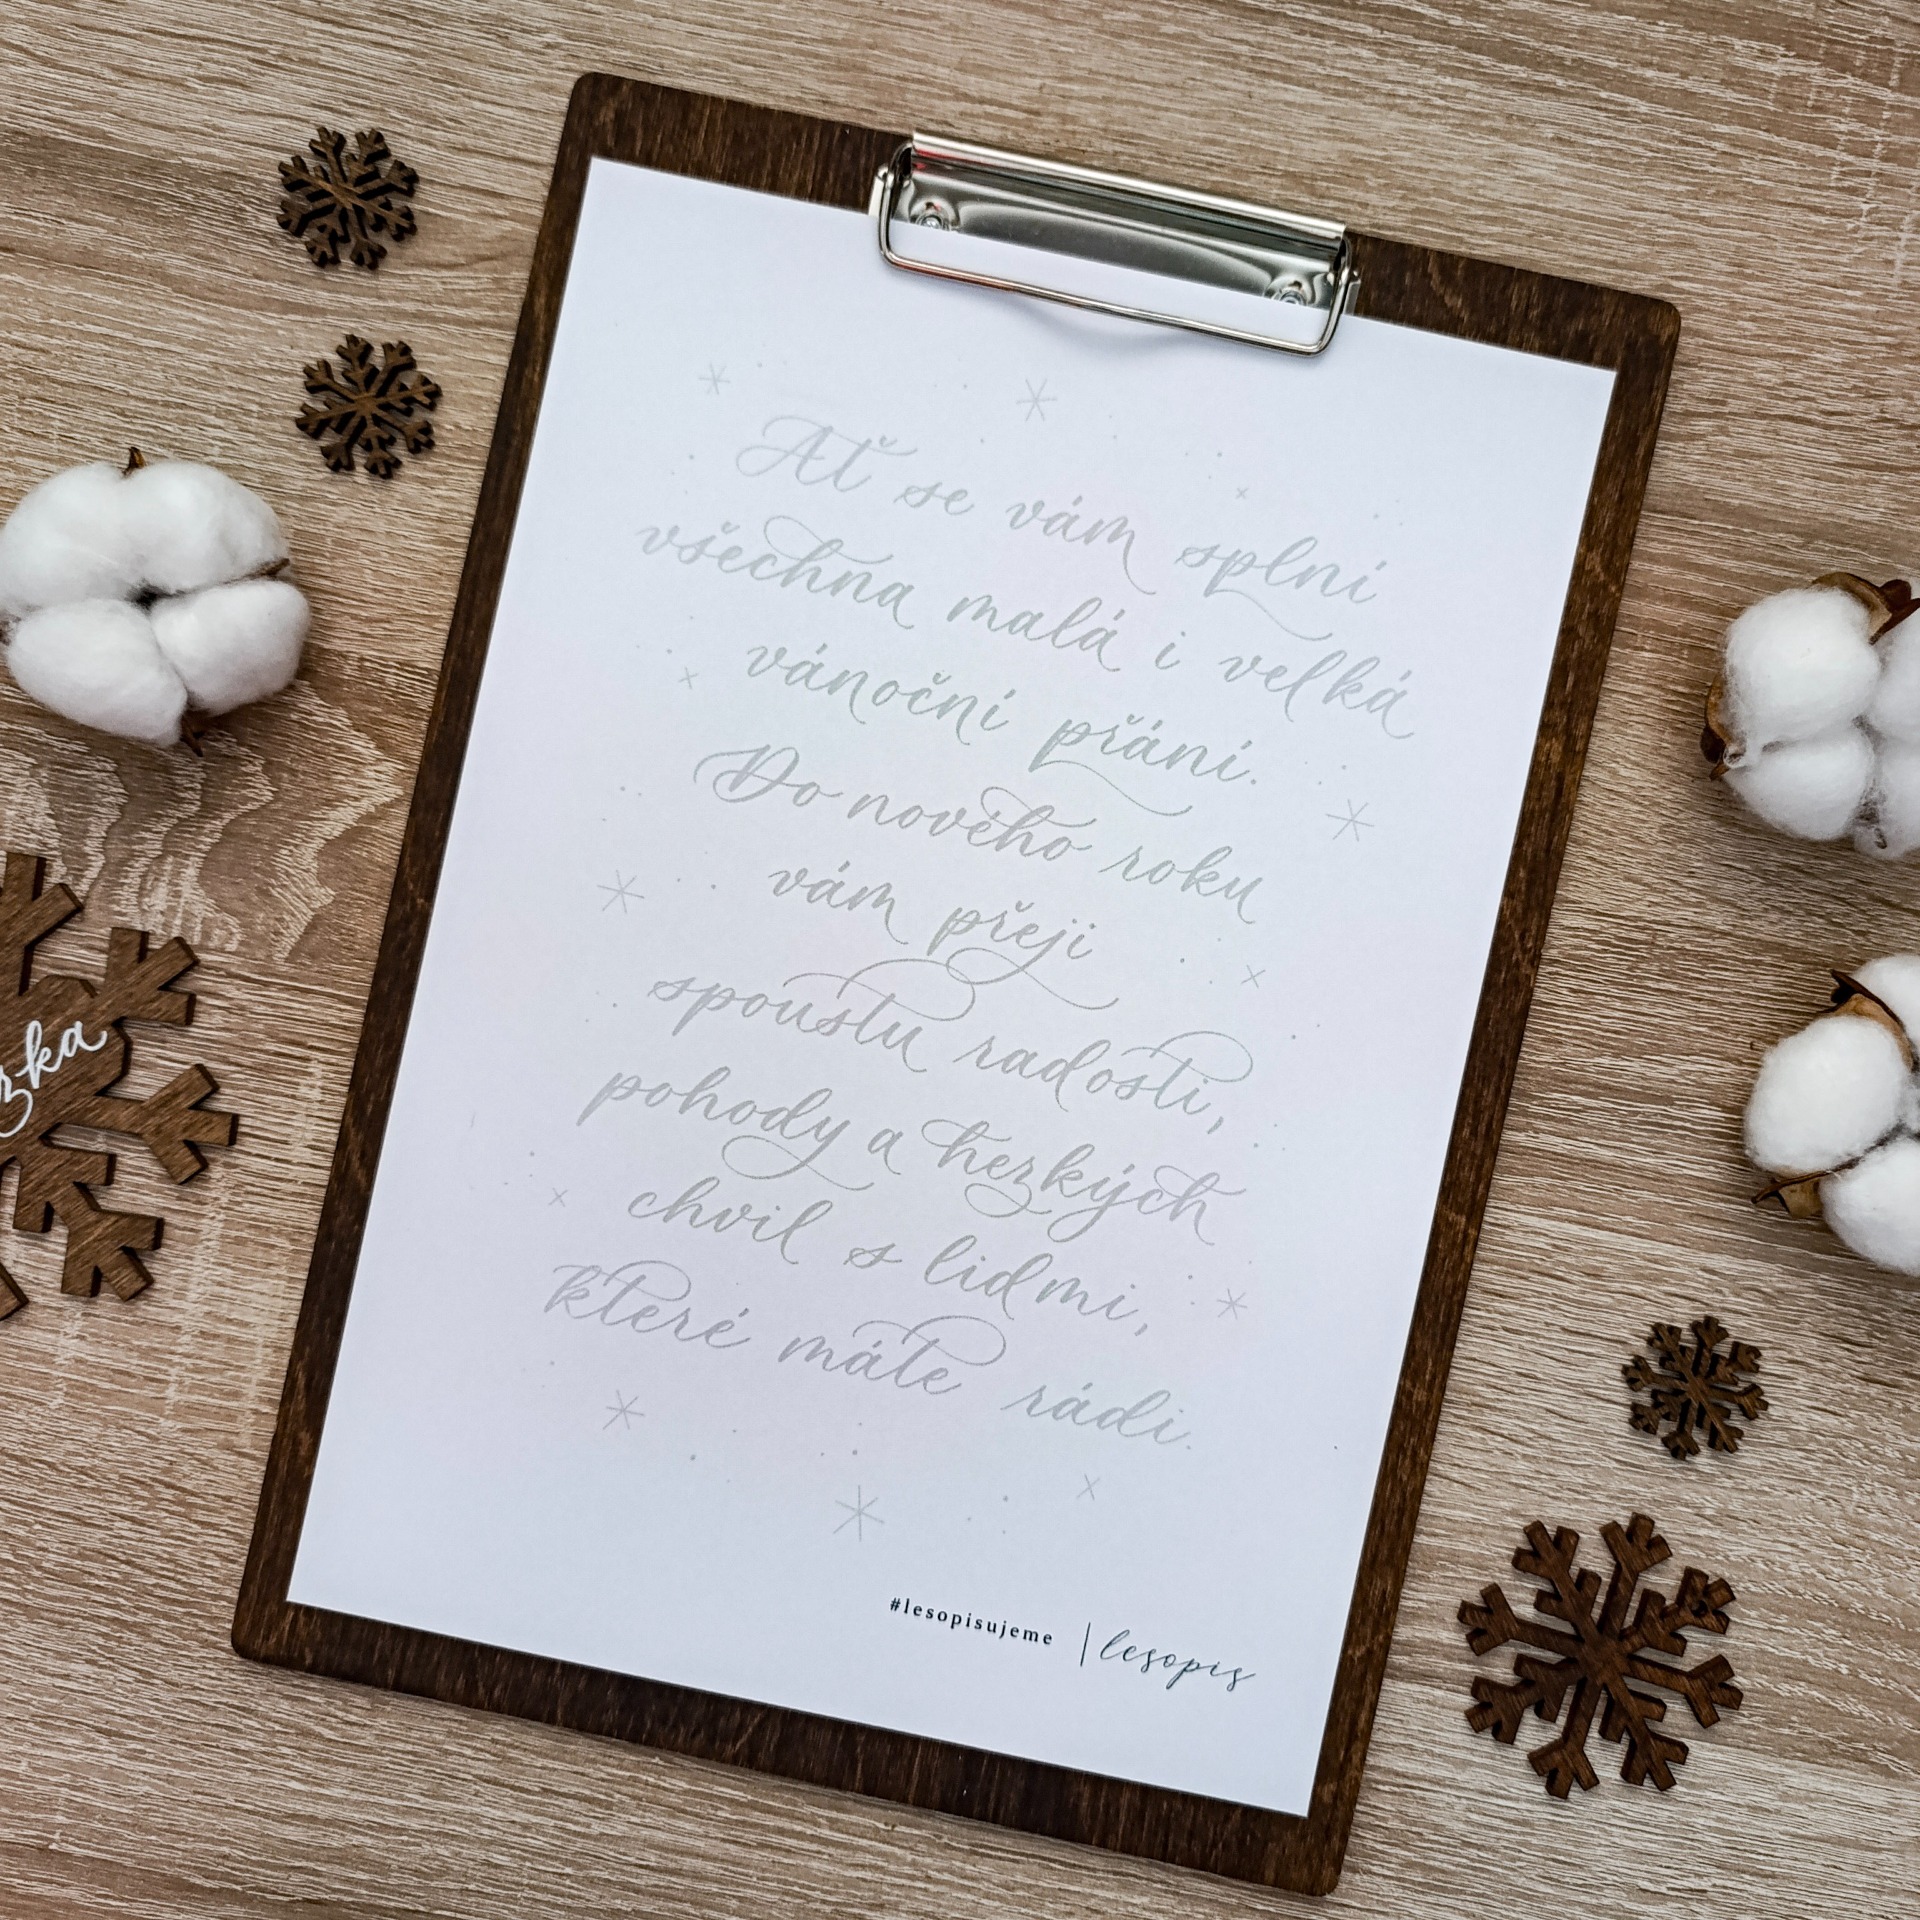 Ať se vám splní
všechna malá i velká
vánoční přání.
Do nového roku
vám přeji
spoustu radosti,
pohody a hezkých
chvil s lidmi,
které máte rádi.
#lesopisujeme | lesopis